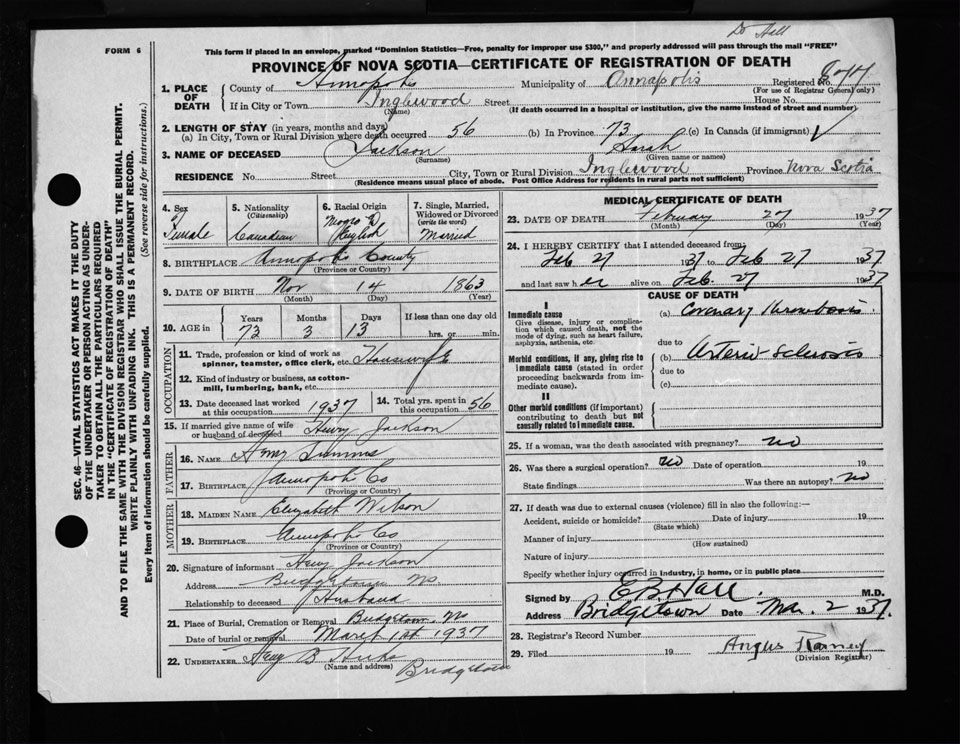 Dr Hall
FORM 6
This form if placed in an envelope, marked "Dominion Statistics—Free, penalty for improper use $300," and properly addressed will pass through the mail "FREE"
PROVINCE OF NOVA SCOTIA—CERTIFICATE OF REGISTRATION OF DEATH
1. PLACE OF DEATH
County of Annapolis Municipality of Annapolis Registered No.
(For use of Registrar General only)
If in City or Town Inglewood Street House No.
(Name) (If death occurred in a hospital or institution, give the name instead of street and number)
2. LENGTH OF STAY (in years, months and days)
(a) In City, Town or Rural Division where death occurred 56 (b) In Province 73 (c) In Canada (if immigrant)
3. NAME OF DECEASED Jackson Sarah
(Surname) (Given name or names)
RESIDENCE No. Street City, Town or Rural Division Inglewood Province Nova Scotia
(Residence means usual place of abode. Post Office Address for residents in rural parts not sufficient)
4. Sex
Female
5. Nationality
(Citizenship)
Canadian
6. Racial Origin
Negro
English
7. Single, Married, Widowed or Divorced
(write the word)
Married
8. BIRTHPLACE Annapolis County
(Province or Country)
9. DATE OF BIRTH Nov 14 1863
(Month) (Day) (Year)
10. AGE in
Years Months Days If less than one day old
73 3 13 hrs. or min.
OCCUPATION
11. Trade, profession or kind of work as spinner, teamster, office clerk, etc. Housewife
12. Kind of industry or business, as cotton-mill, lumbering, bank, etc.
13. Date deceased last worked at this occupation 1937
14. Total yrs. spent in this occupation 56
15. If married give name of wife or husband of deceased Henry Jackson
FATHER
16. NAME Simms
17. BIRTHPLACE Annapolis Co
(Province or Country)
MOTHER
18. MAIDEN NAME Elizabeth Wilson
19. BIRTHPLACE Annapolis Co
(Province or Country)
20. Signature of informant Henry Jackson
Address Bridgetown NS
Relationship to deceased Husband
21. Place of Burial, Cremation or Removal Bridgetown NS
Date of burial or removal March 1st 1937
22. UNDERTAKER Henry B Hicks
(Name and address) Bridgetown
MEDICAL CERTIFICATE OF DEATH
23. DATE OF DEATH February 27 1937
(Month) (Day) (Year)
24. I HEREBY CERTIFY that I attended deceased from
Feb 27 1937 to Feb 27 1937
and last saw her alive on Feb. 27 1937
CAUSE OF DEATH
I
Immediate cause
Give disease, injury or complication which caused death, not the mode of dying, such as heart failure, asphyxia, asthenia, etc.
(a) Coronary thrombosis
due to
Morbid conditions, if any, giving rise to immediate cause (stated in order proceeding backwards from immediate cause).
(b) Arterio sclerosis
due to
(c)
II
Other morbid conditions (if important) contributing to death but not causally related to immediate cause.
25. If a woman, was the death associated with pregnancy? no
26. Was there a surgical operation? no Date of operation 19
State findings Was there an autopsy? no
27. If death was due to external causes (violence) fill in also the following:—
Accident, suicide or homicide? Date of injury 19
(State which)
Manner of injury
(How sustained)
Nature of injury
Specify whether injury occurred in industry, in home, or in public place
Signed by E B Hall M.D.
Address Bridgetown Date Mar. 2 1937.
28. Registrar's Record Number
29. Filed 19 Angus
(Division Registrar)
SEC. 46—VITAL STATISTICS ACT MAKES IT THE DUTY
OF THE UNDERTAKER OR PERSON ACTING AS UNDER-
TAKER TO OBTAIN ALL THE PARTICULARS REQUIRED
IN THE "CERTIFICATE OF REGISTRATION OF DEATH"
AND TO FILE THE SAME WITH THE DIVISION REGISTRAR WHO SHALL ISSUE THE BURIAL PERMIT.
WRITE PLAINLY WITH UNFADING INK. THIS IS A PERMANENT RECORD.
Every item of information should be carefully supplied. (See reverse side for instructions.)